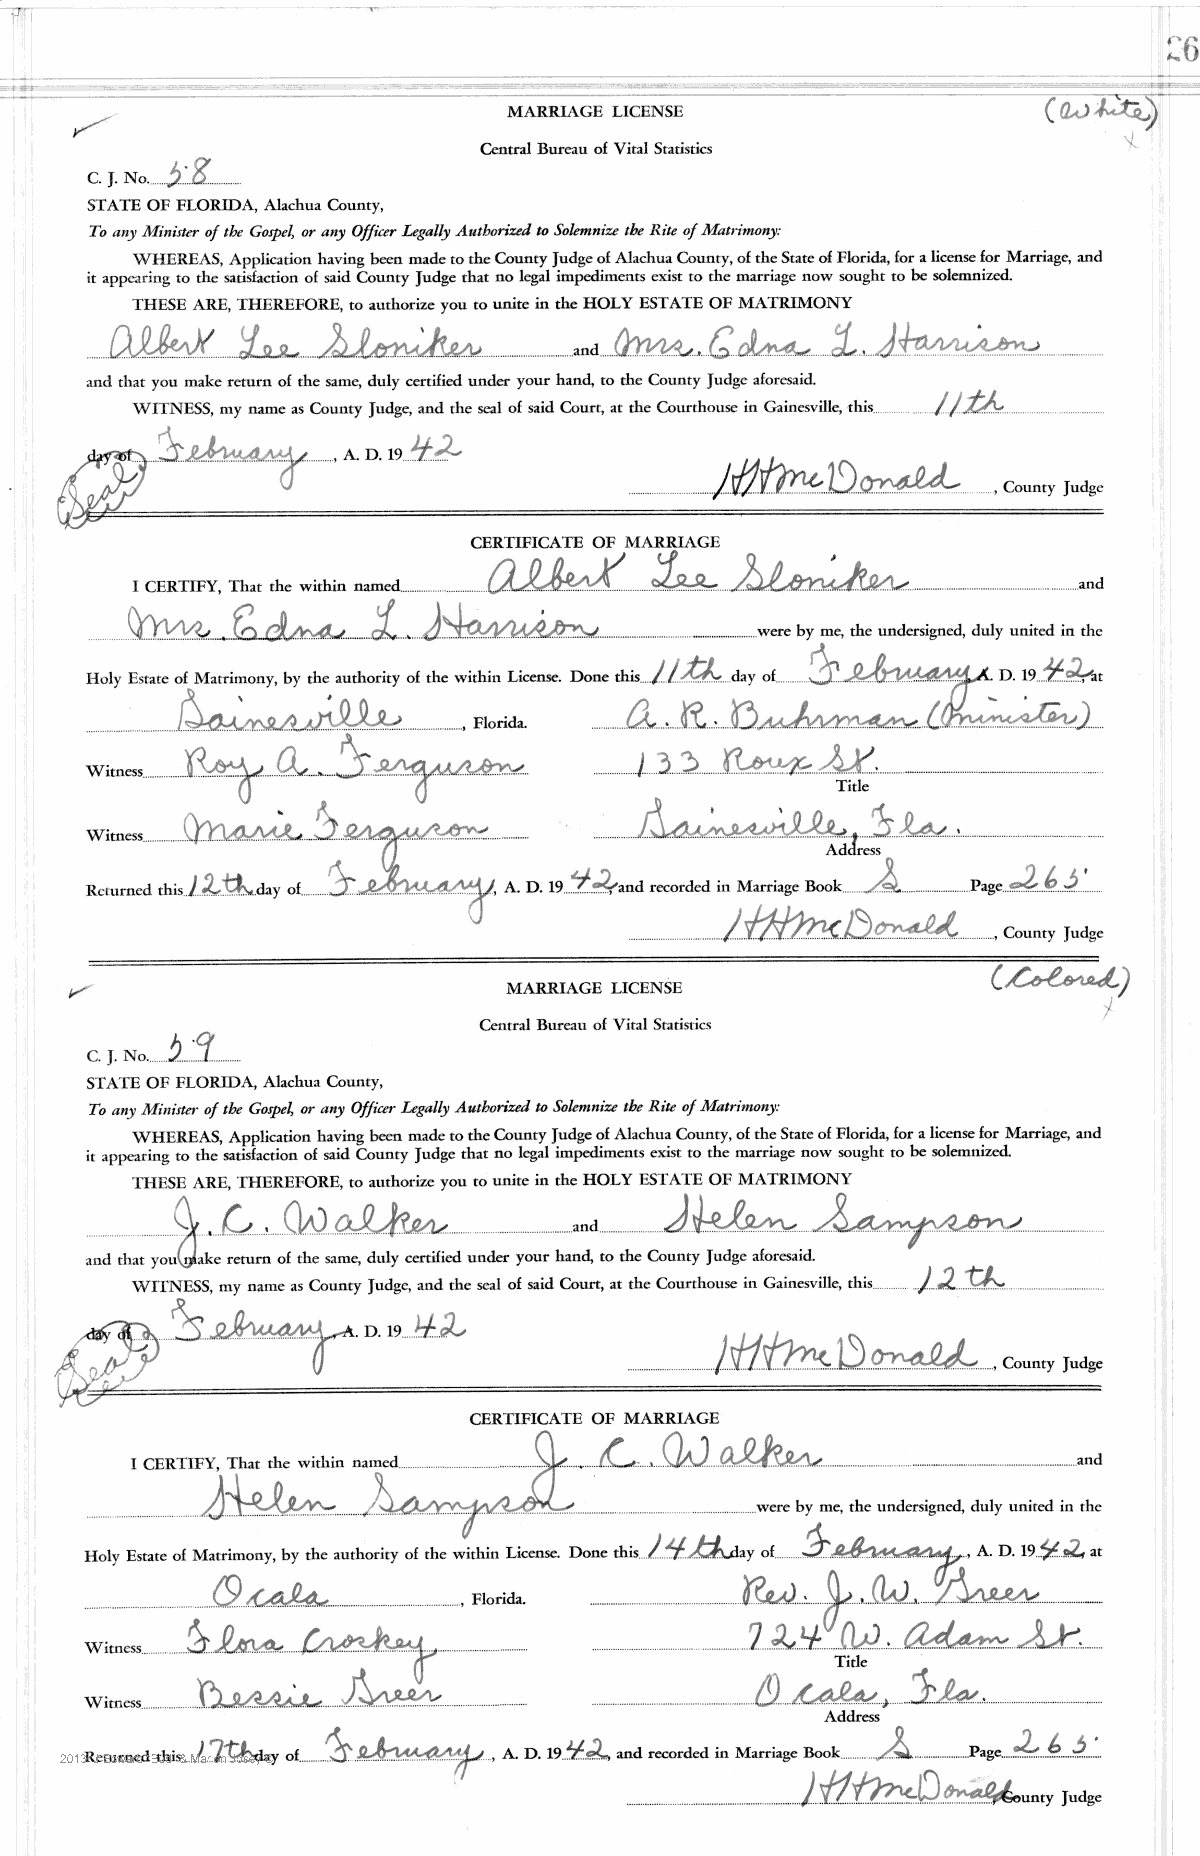 26
MARRIAGE LICENSE (White)
Central Bureau of Vital Statistics
C. J. No. 58
STATE OF FLORIDA, Alachua County,
To any Minister of the Gospel, or any Officer Legally Authorized to Solemnize the Rite of Matrimony:
WHEREAS, Application having been made to the County Judge of Alachua County, of the State of Florida, for a license for Marriage, and
it appearing to the satisfaction of said County Judge that no legal impediments exist to the marriage now sought to be solemnized.
THESE ARE, THEREFORE, to authorize you to unite in the HOLY ESTATE OF MATRIMONY
Albert Lee Sloniker and Mrs. Edna L. Harrison
and that you make return of the same, duly certified under your hand, to the County Judge aforesaid.
WITNESS, my name as County Judge, and the seal of said Court, at the Courthouse in Gainesville, this 11th
day of February, A. D. 19 42
Seal HH McDonald, County Judge
CERTIFICATE OF MARRIAGE
I CERTIFY, That the within named Albert Lee Sloniker and
Mrs. Edna L. Harrison were by me, the undersigned, duly united in the
Holy Estate of Matrimony, by the authority of the within License. Done this 11th day of February, A. D. 19 42, at
Gainesville, Florida. A. R. Buhrman (Minister)
Witness Roy A. Ferguson 133 Roux St.
Title
Witness Marie Ferguson Gainesville, Fla.
Address
Returned this 12th day of February, A. D. 19 42, and recorded in Marriage Book S Page 265
HH McDonald, County Judge
MARRIAGE LICENSE (Colored)
Central Bureau of Vital Statistics
C. J. No. 59
STATE OF FLORIDA, Alachua County,
To any Minister of the Gospel, or any Officer Legally Authorized to Solemnize the Rite of Matrimony:
WHEREAS, Application having been made to the County Judge of Alachua County, of the State of Florida, for a license for Marriage, and
it appearing to the satisfaction of said County Judge that no legal impediments exist to the marriage now sought to be solemnized.
THESE ARE, THEREFORE, to authorize you to unite in the HOLY ESTATE OF MATRIMONY
J. C. Walker and Helen Sampson
and that you make return of the same, duly certified under your hand, to the County Judge aforesaid.
WITNESS, my name as County Judge, and the seal of said Court, at the Courthouse in Gainesville, this 12th
day of February, A. D. 19 42
Seal HH McDonald, County Judge
CERTIFICATE OF MARRIAGE
I CERTIFY, That the within named J. C. Walker and
Helen Sampson were by me, the undersigned, duly united in the
Holy Estate of Matrimony, by the authority of the within License. Done this 14th day of February, A. D. 19 42, at
Ocala, Florida. Rev. J. W. Greer
Witness Flora Croskey 724 W. Adam St.
Title
Witness Bessie Greer Ocala, Fla.
Address
Returned this 17th day of February, A. D. 19 42, and recorded in Marriage Book S Page 265
HH McDonald County Judge